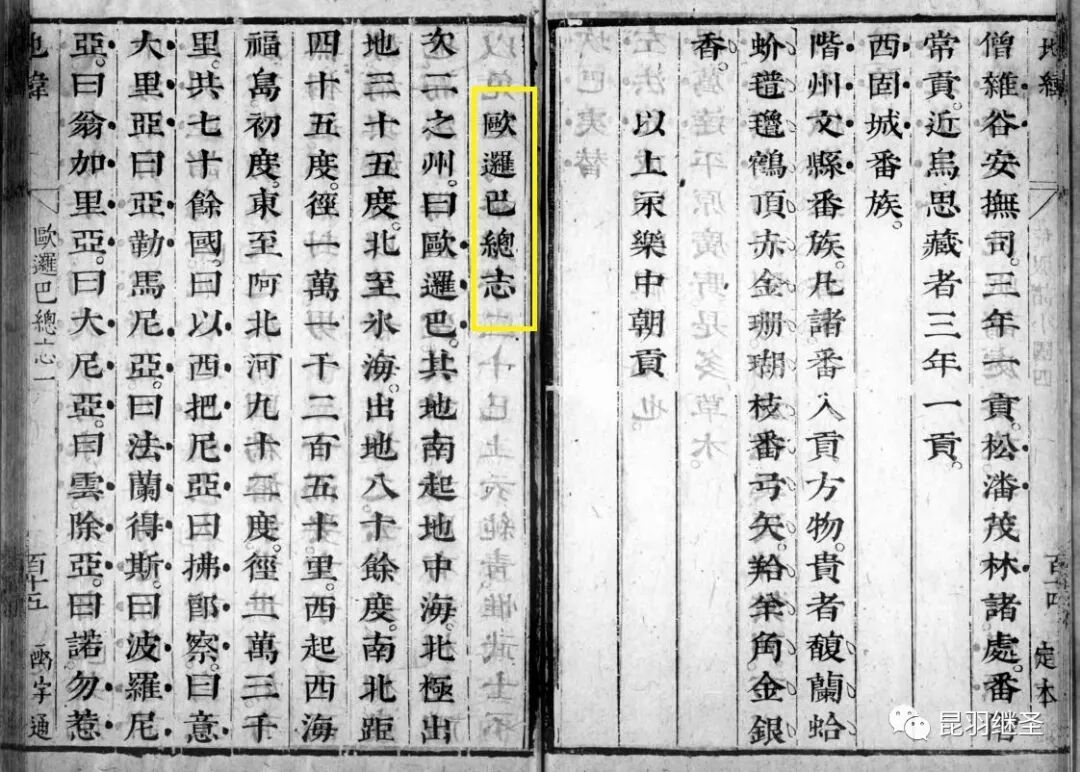 地緯
百十四
定本
僧雜谷安撫司。三年一貢。松潘茂林諸處。番僧
常貢。近烏思藏者三年一貢。
西固城番族。
階州文縣番族。凡諸番入貢方物。貴者馥蘭蛤
蚧氆氌鶴頂赤金珊瑚枝番弓矢。羚羊角。金銀
香。
以上永樂中朝貢
歐邏巴總志
次二之州。曰歐邏巴。其地南起地中海。北極出
地三十五度。北至氷海。出地八十餘度。南北距
四十五度。徑一萬一千二百五十里。西起西海
福島初度。東至阿北河九十二度。徑二萬三千
里。共七十餘國。曰以西把尼亞。曰拂郎察。曰意
大里亞。曰亞勒馬尼亞。曰法蘭得斯。曰波羅尼
亞。曰翁加里亞。曰大尼亞。曰雲除亞。曰諾勿惹
地緯
歐邏巴總志一
百十五
函宇通
昆羽继圣